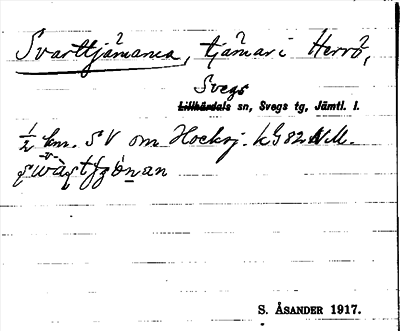 Svarttjärnarna, tjärnar i Herrö,
Svegs
Lillhärdals sn, Svegs tg, Jämtl. l.
½ km. SV om Hocksj. kG82NM.
S. ÅSANDER 1917.